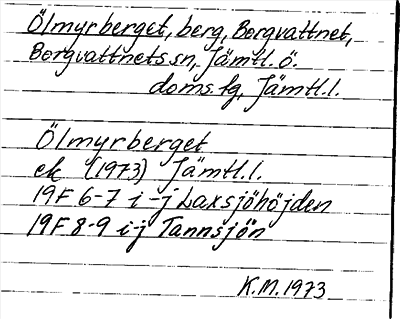 Ölmyrberget, berg, Borgvattnet,
Borgvattnets sn, Jämtl. ö.
doms.fg, Jämtl.l.
Ölmyrberget
ek (1973) Jämtl.l.
19F 6-7 i-j Laxsjöhöjden
19F 8-9 i-j Tannsjön
K.M. 1973